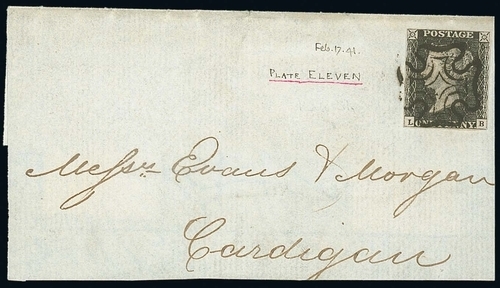 Feb. 17. 41.
PLATE ELEVEN
POSTAGE
L ONE PENNY B
Messrs Evans & Morgan
Cardigan